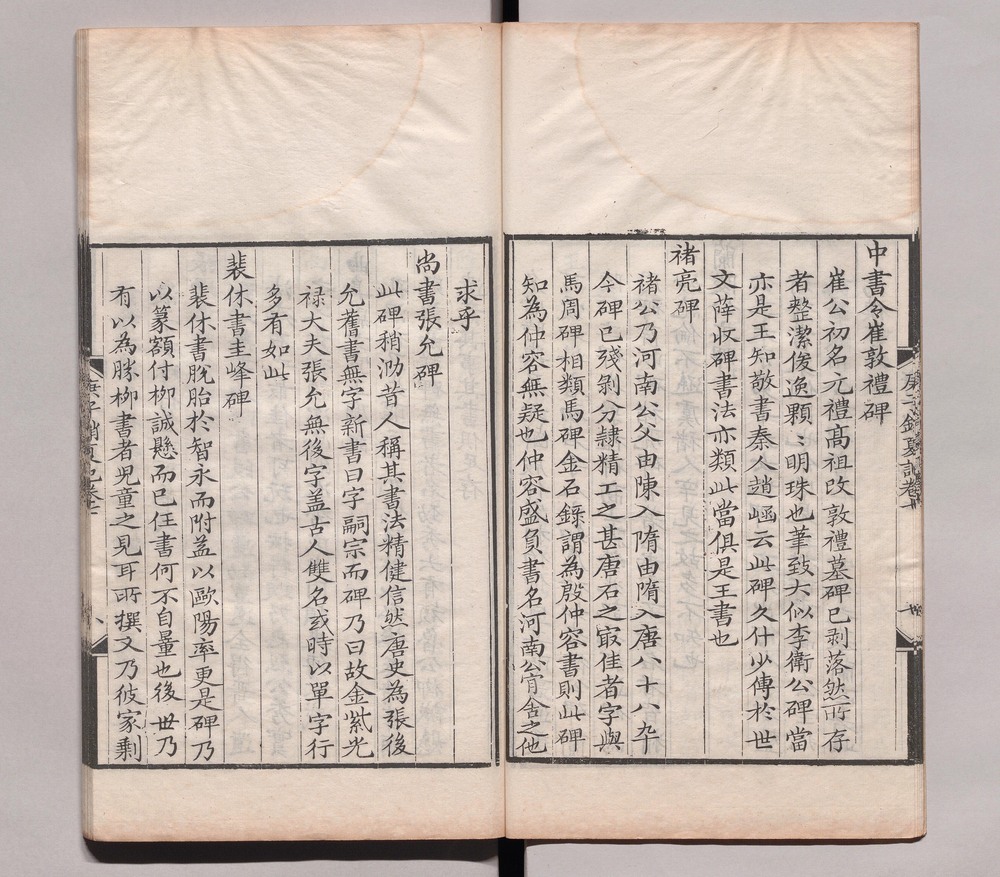 中書令崔敦禮碑
崔公初名元禮髙祖改敦禮墓碑已剥落然所存
者整潔俊逸顆〻明珠也華致大似李衛公碑當
亦是王知敬書秦人趙崡云此碑久什少傳於世
文薛收碑書法亦類此當俱是王書也
褚亮碑
褚公乃河南公父由陳入隋由隋入唐八十八卒
今碑已殘剝分隷精工之甚唐石之㝡佳者字與
馬周碑相類馬碑金石錄謂為殷仲容書則此碑
知為仲容無疑也仲容盛負書名河南公肯舍之他
求乎
尚書張允碑
此碑稍泐昔人稱其書法精健信然唐史為張後
允舊書無字新書曰字嗣宗而碑乃曰故金紫光
禄大夫張允無後字盖古人雙名或時以單字行
多有如此
裴休書圭峰碑
裴休書脫胎於智永而附益以歐陽率更是碑乃
以篆額付柳誠懸而已任書何不自量也後世乃
有以為勝柳書者児童之見耳所撰又乃彼家剩
庚子銷夏記卷
八